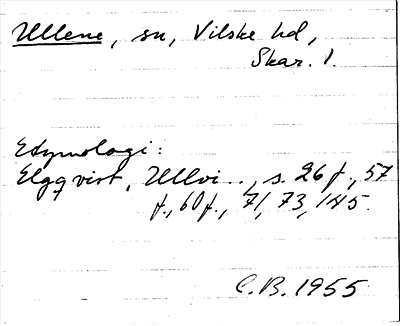 Ullene, sn, Vilske hd,
Skar. l.
Etymologi:
Elgqvist, Ullvi.., s. 26 f., 57
f., 60 f., 71, 73, 145.
C.B. 1955